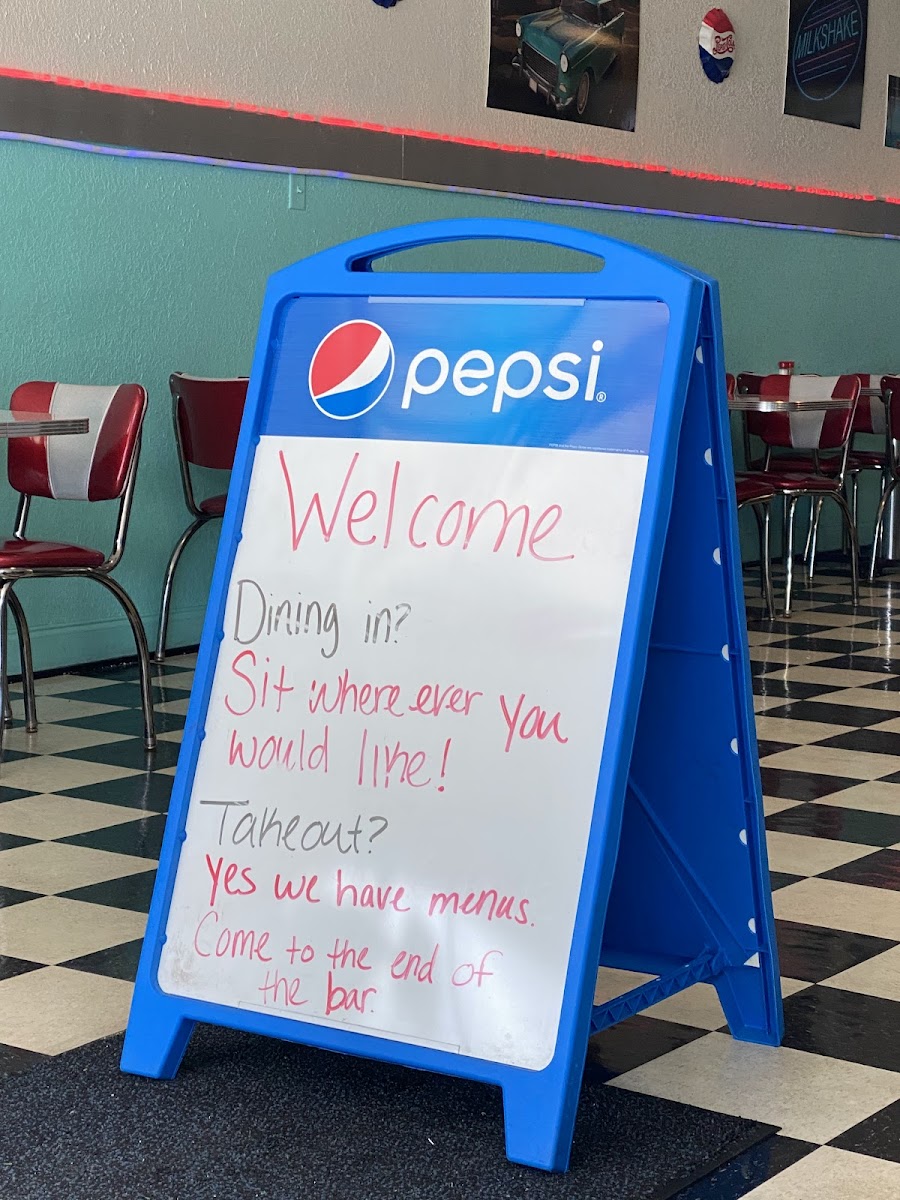 MILKSHAKE
pepsi®
Welcome
Dining in?
Sit where ever you
would like!
Takeout?
Yes we have menus.
Come to the end of
the bar.